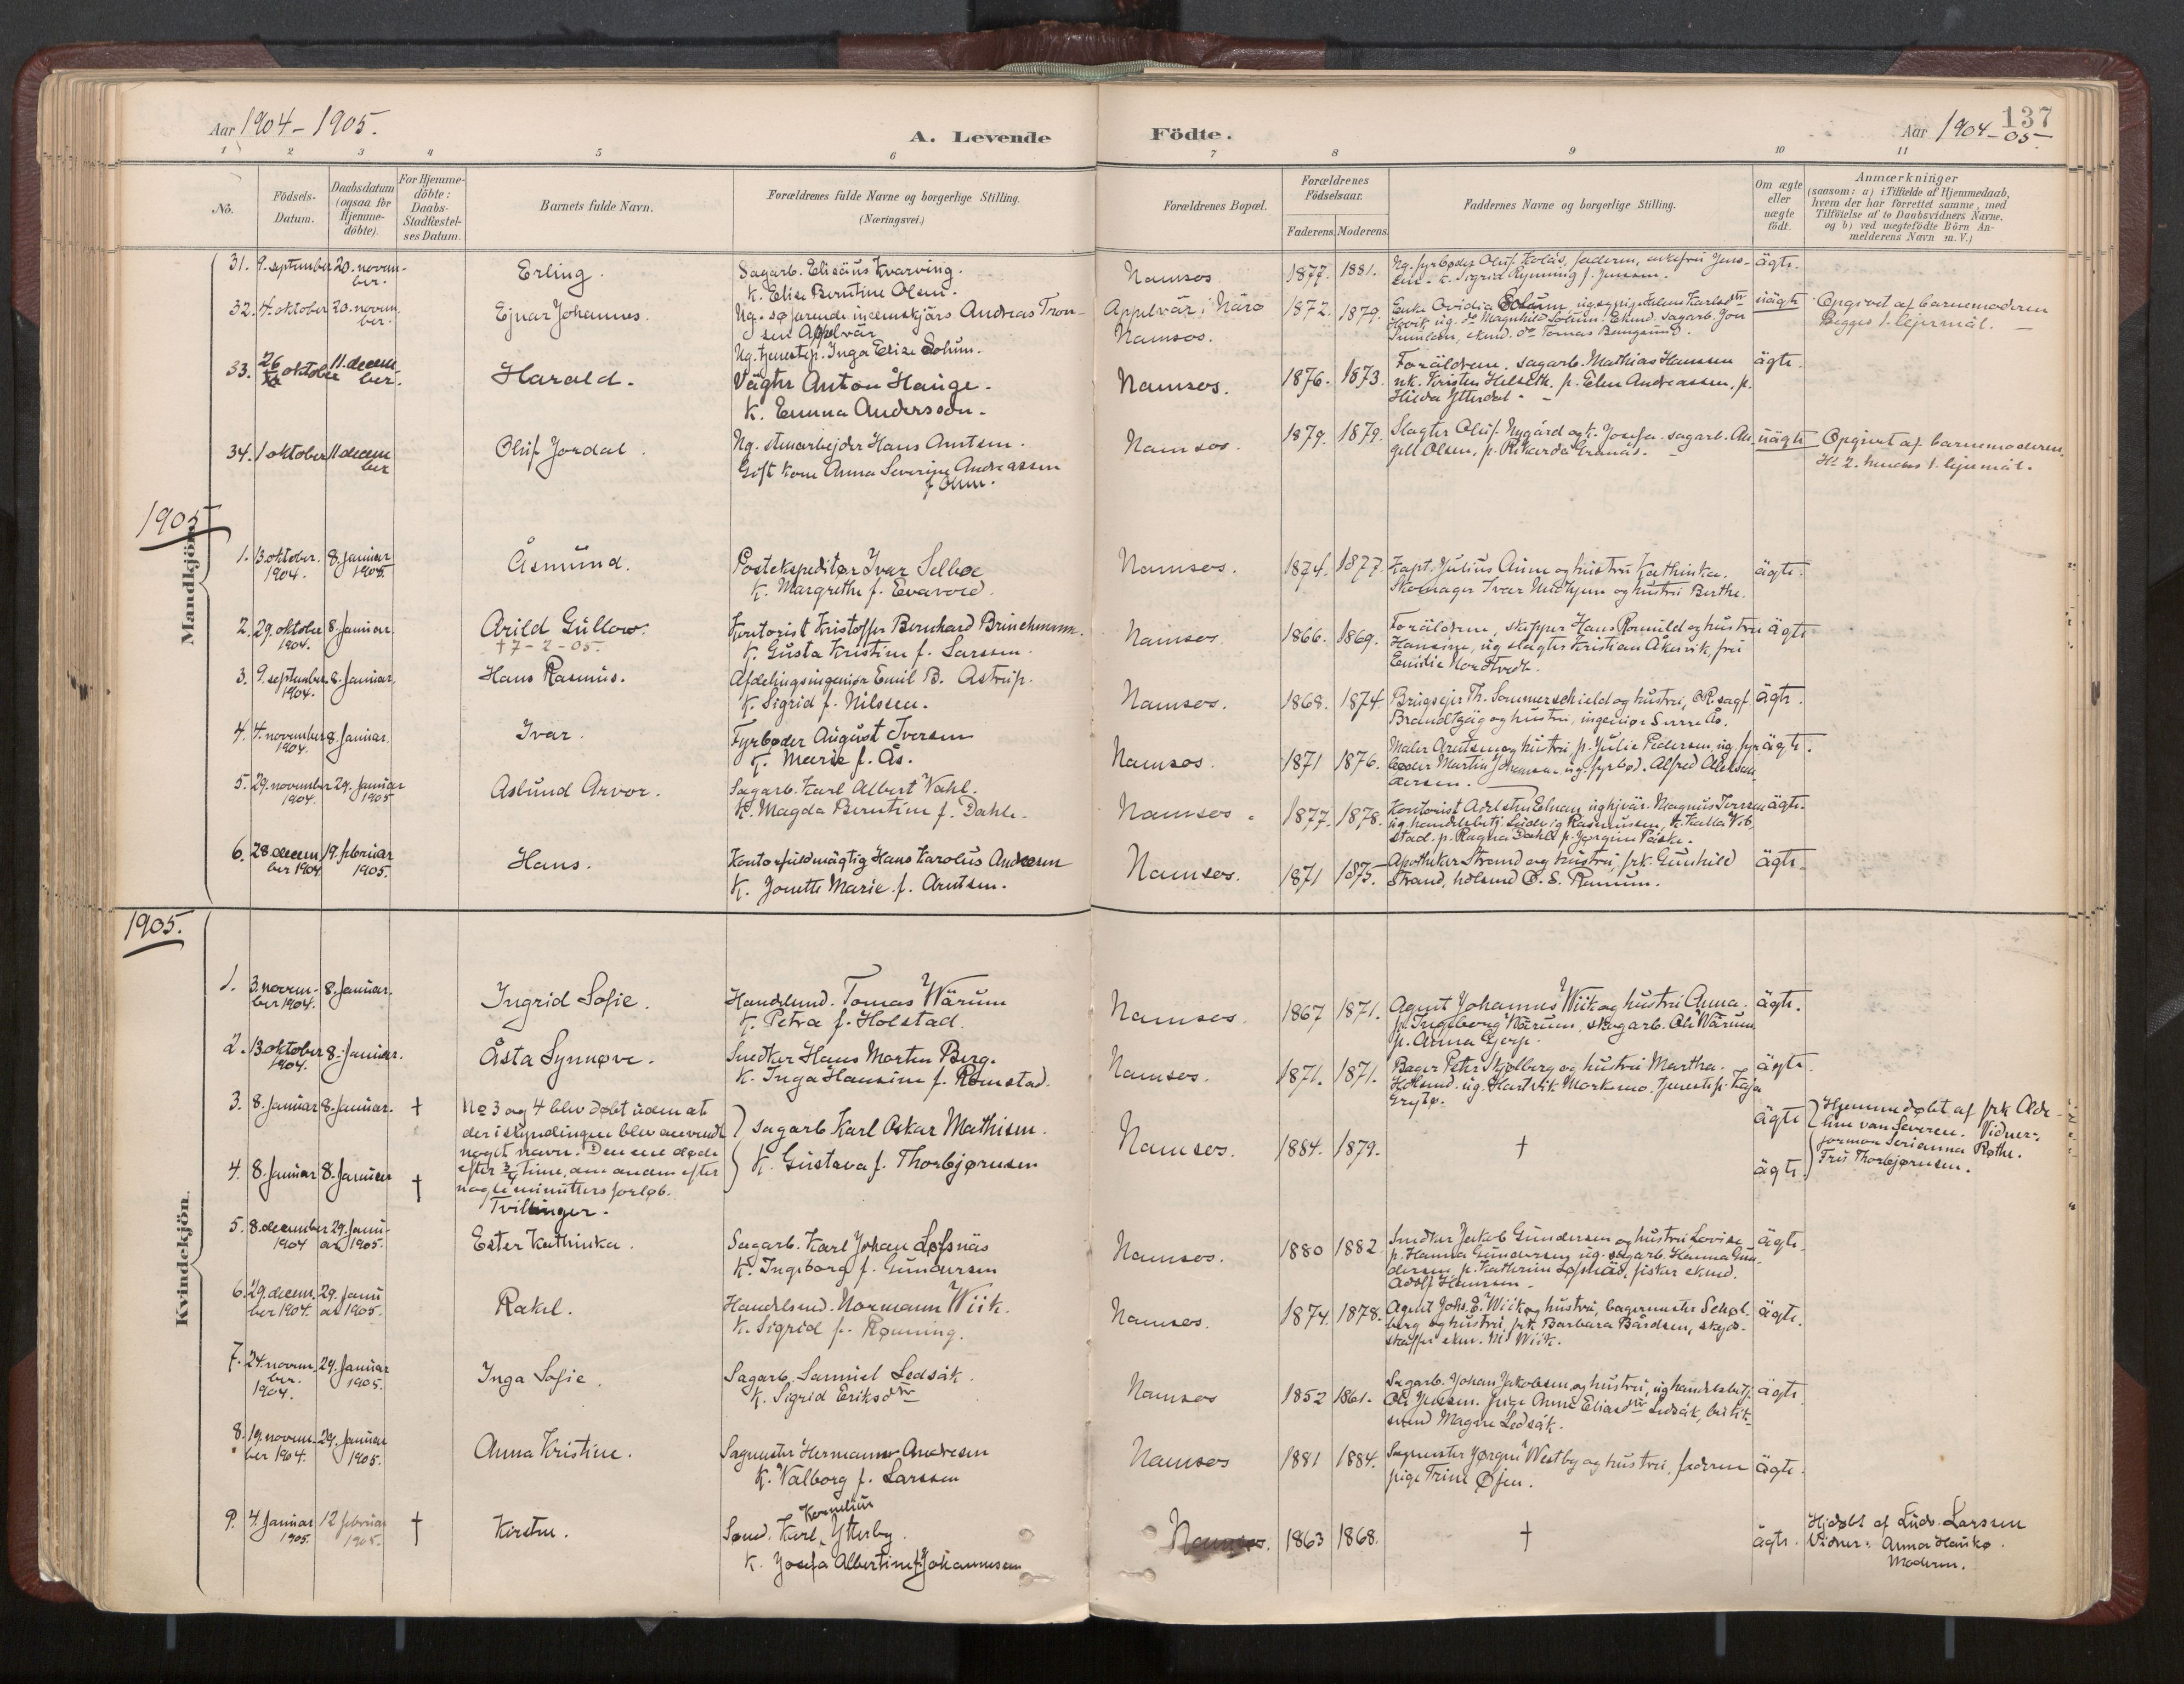 Aar 1904-1905.
A. Levende
Födte.
Aar 1904-05
137
1 2 3 4 5 6 7 8 9 10 11
No.
Födsels-Datum.
Daabsdatum (ogsaa for Hjemme-döbte).
For Hjemme-döbte: Daabs-Stadfæstel-ses Datum.
Barnets fulde Navn.
Forældrenes fulde Navne og borgerlige Stilling.
(Næringsvei.)
Forældrenes Bopæl.
Forældrenes Födselsaar.
Faderens. Moderens.
Faddernes Navne og borgerlige Stilling.
Om ægte eller uægte födt.
Anmærkninger
(saasom: a) i Tilfælde af Hjemmedaab,
hvem der har forrettet samme, med
Tilföielse af to Daabsvidners Navne.
og b) ved uægtefödte Börn An-
melderens Navn m. V.)
Mandkjön.
31. 9. september 20. novem-ber. Erling. Sagarb. Elisäus Kvarving.
K. Elise Berntine Olsen.
Namsos. 1877. 1881.
Ng. fyrbøder Oluf Kolås, faderen, enkefru Jens-
sen. K. Sigrid Rynning f. Jenssen.
ägte.
32. 4. oktober 20. novem-ber. Ejnar Johannes. Ug. søfarende Andreas Tron-
sen Appelvär
Ug. tjenestep. Inga Elise Solum.
Appelvär i Närö
Namsos.
1872. 1879.
Enke Ovidia Solum
uägte
Opgivet af barnemoderen
Begges 1. lejermål.
33. 26 oktober 11. decem-ber. Harald. Vägter Anton Hauge.
K. Emma Andersson.
Namsos. 1876. 1873.
Foräldrene, sagarb. Mathias Hanssen
K. Kirsten Helseth, p. Elen Andreassen, p.
Hilda Ytterdal.
ägte.
34. 1 oktober 11 decem-ber Oluf Jordal. Ug. stenarbejder Hans Arntsen.
Gift kone Anna Severine Andreassen
f. Olsen.
Namsos. 1879. 1879.
Slagter Oluf Nygård og k. Josefa. sagarb. An-
gell Olsen, p. Rikarda Granås.
uägte
Opgivet af barnemoderen.
Hs 2. hendes 1. lejermål.
1905
1. 13. oktober. 1904. 8. januar 1905. Åsmund. Postekspeditør Ivar Selboe
K. Margrethe f. Evavold.
Namsos. 1874. 1877.
Kapt. Julius Aune og hustru Kathinka.
Skomager Ivar og hustru Berthe.
ägte.
2. 29. oktober 1904. 8. januar. Arild Gullow.
† 7-2-05.
Kontorist Kristoffer Bernhard Brinchmann.
K. Gusta Kristine f. Larsen.
Namsos. 1866. 1869.
Foräldrene, skipper Hans Romuld og hustru
Hansine, ug slagter Kristian Åkervik, fru
Emilie Nordtvedt.
ägte
3. 9. september 1904. 8. januar. Hans Rasmus. Afdelingsingeniør Emil B. Astrup.
K. Sigrid f. Nilssen.
Namsos. 1868. 1874
Brugsejer Th. Sommerschield og hustru, O.R. sagf.
Brandtzäg og hustru, ingeniør Sverre Ås.
ägte.
4. 4. november 1904. 8. januar. Ivar. Fyrbøder August Iversen
K. Marie f. Ås.
Namsos. 1871 1876.
Maler Arntsen og hustru p. Julie Pedersen, ug. fyr-
bøder Martin Johansen ug. fyrbød. Alfred Aleksan-
dersen.
ägte.
5. 29. november 1904. 29. januar 1905 Aslund Arvor. Sagarb. Karl Albert Vahl.
K. Magda Berntine f. Dahle.
Namsos. 1877. 1878.
Kontorist Adelsten Elnan ug hjvär. Magnus Iversen
ug. handelsbetj. Ludvig Rasmussen, K. Kalla Vib-
stad. p. Ragna Dahle p. Jørgine Påske.
ägte.
6. 28. decem-ber 1904 19. februar 1905. Hans. Kontorfuldmägtig Hans Karolus Andersen
K. Jonette Marie f. Arntsen.
Namsos. 1871 1875.
Apotheker Strand og hustru, frk. Gunhild
Strand, hdlsmd O. S. Remium.
ägte.
1905.
Kvindekjön.
1. 3. novem-ber 1904. 8. januar. Ingrid Sofie. Handelsmd. Tomas Wärum
K. Petra f. Holstad.
Namsos. 1867 1871.
Agent Johannes Wiik og hustru Anna.
p. Ingeborg Wärum, skogarb. Ole Wärum
p. Anna Gjerp.
ägte.
2. 13 oktober 1904. 8. januar. Åsta Synnøve. Snedker Hans Morten Berg.
K. Inga Hansine f. Romstad.
Namsos. 1871. 1871.
Bager Peter Skjølberg og hustru Martha.
Hdlsmd. ug. Hartvik Morkemo. tjenestep. Kaja
Grytø.
ägte.
3. 8. januar 8. januar. †
4. 8. januar 8. januar †
No 3 og 4 blev døbt uden at
der i skyndingen blev anvendt
noget navn. Den ene døde
efter ¾ time, den anden efter
nogle minutters forløb.
Tvillinger.
Sagarb. Karl Oskar Mathisen.
K. Gustava f. Thorbjørnsen
Namsos. 1884. 1879. †
ägte
ägte.
Hjemmedøbt af frk Ade-
line van Severen. Vidner:
jormor Serianna Røthe.
Fru Thorbjørnsen.
5. 8. december 1904 29. janu-ar 1905. Ester Kathinka. Sagarb. Karl Johan Løfsnäs
K. Ingeborg f. Gundersen
Namsos. 1880 1882
Snedker Jakob Gundersen og hustru Lovise
p. Hanna Gundersen ug. sagarb. Hanna Gun-
dersen p. Kathrine Løfsnäs, fisker ekmd.
Adolf Hansen
ägte.
6. 29. decem-ber 1904. 29. janu-ar 1905. Rakel. Handelsmd. Normann Wiik.
K. Sigrid f. Rønning.
Namsos. 1874. 1878.
Agent Johs. Ø. Wiik og hustru, bagermester Schøl-
berg og hustru, frk. Barbara Bårdsen, skyds-
skaffer ekm. Nil Wiik.
ägte.
7. 24. novem-ber. 1904. 29. januar 1905. Inga Sofie. Sagarb. Samuel Ledsåk.
K. Sigrid Eriksdtr
Namsos 1852 1861.
Sagarb. Johan Jakobsen og hustru, ug handelsbetj.
Ole Jenssen. Pige Anne Eliasdtr Ledsåk, butik-
smd Magne Ledsåk.
ägte.
8. 19. novem-ber 1904. 29. januar 1905. Anna Kristine. Sagmester Hermann Andresen
K. Valborg f. Larssen
Namsos 1881 1884.
Sagmester Jørgen Westby og hustru, faderen
pige Trine Øfen.
ägte.
9. 4. januar 1905. 12 februar 1905. † Kirsten. Smed. Karl Kornelius Ytterby.
K. Josefa Albertine f. Johannessen
Namsos. 1863 1868. †
ägte.
Hjdøbt af Ludv. Larssen
Vidner: Anna Haukø.
Moderen.